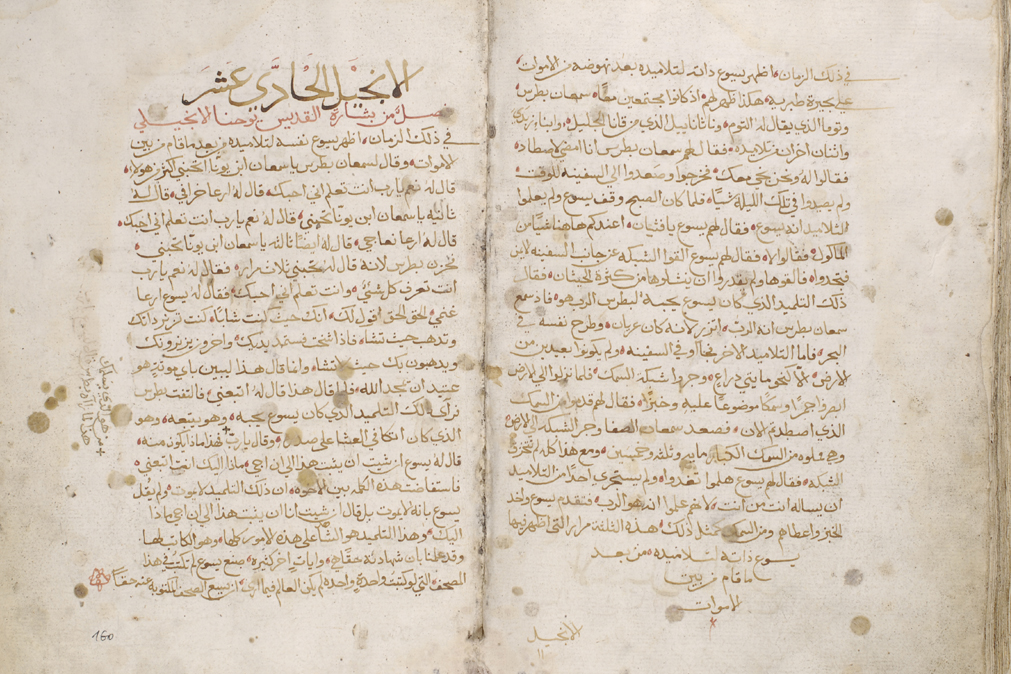 في ذلك الزمان اظهر يسوع ذاته لتلاميذه بعد نهوضه من الاموات
علي بحيرة طبرية هكذا ظهر لهم اذ كانوا مجتمعين معًا سمعان بطرس
وتوما الذي يقال له التوم وناثاناييل الذي من قانا الجليل وابنا زبدي
واثنان اخران من تلاميذه فقال لهم سمعان بطرس انا امضي لاصطاد
فقالوا له ونحن نجي معك فخرجوا وصعدوا الي السفينه للوقت
ولم يصيدوا في تلك الليلة شيًا فلما كان الصبح وقف يسوع ولم يعلموا
التلاميد انه يسوع فقال لهم يسوع يا فتيان اعندكم هاهنا شيًا من
الماكول فقالوا لا فقال لهم يسوع القوا الشبكه عن جانب السفينه الايمن
فتجدوا فالقوها ولم يقدروا ان ينشلوها من كثرة الحيتان فقال
ذلك التلميد الذي كان يسوع يحبه لبطرس الرب هو فاذ سمع
سمعان بطرس انه الرب اتزر لانه كان عريان وطرح نفسه في
البحر فاما التلاميد الاخر فجاوا في السفينه ولم يكونوا بعيدين من
الارض الا نحو مايتي دراع وجروا شبكة السمك فلما نزلوا الي الارض
ابصروا جمرًا وسمكًا موضوعًا عليه وخبزًا فقال لهم قدموا من السمك
الذي اصطدتم الان فصعد سمعان الصفا وجر الشبكه الي الارض
وهي مملوه من السمك الكبار مايه وثلثه وخمسين ومع هذا كله لم تتخرق
الشبكه فقال لهم يسوع هلموا تغدوا ولم يستجري احدًا من التلاميد
ان يساله انت من انت لانهم علموا انه هو الرب فتقدم يسوع واخد
الخبز واعطاهم ومن السمك كمثل ذلك هذه الثلثة مرار التي اظهر فيها
يسوع ذاته لتلاميذه من بعد
ما قام من بين
الاموات
الانجيل
الانجيل الحادي عشر
فصل من بشارة القديس يوحنا الانجيلي
في ذلك الزمان اظهر يسوع نفسه لتلاميذه من بعد ما قام من بين
الاموات وقال لسمعان بطرس يا سمعان ابن يونا اتحبني اكثر من هولاء
قال له نعم يا رب انت تعلم اني احبك قال له ارعا خرافي قال له
ثانيه يا سمعان ابن يونا تحبني قال له نعم يا رب انت تعلم اني احبك
قال له ارعا نعاجي قال له ايضًا ثالثه يا سمعان ابن يونا تحبني
فحزن بطرس لانه قال له تحبني ثلاث مرار فقال له نعم يا رب
انت تعرف كل شئ وانت تعلم اني احبك فقال له يسوع ارعا
غنمي الحق الحق اقول لك انك حيث كنت شابًا كنت تزنر ذاتك
وتذهب حيث تشاء فاذا شخت فستمد يديك واخرون يزنرونك
ويدهبون بك حيث لا تشاء وانما قال هذا ليبين باي موتة هو
عتيد ان يمجد الله فلما قال هذا قال له اتبعني فالتفت بطرس
فراي ذلك التلميد الذي كان يسوع يحبه وهو يتبعه وهو
الذي كان اتكا في العشا على صدره وقال يا رب فهذا ماذا يكون منه
قال له يسوع ان شيت ان يثبت هذا الي ان اجي ماذا اليك انت اتبعني
فاستفاضت هذه الكلمه بين الاخوه ان ذلك التلميد لا يموت ولم يقل
يسوع بانه لا يموت بل قال ان شيت انا ان يثبت هذا الي ان اجي ماذا
اليك وهذا التلميد هو الشاهد علي هذه الامور كلها وهو الكاتب لها
وقد علمنا بان شهادته حقًا هي وايات اخر كثيره صنع يسوع لم تكتب في هذا
المصحف التي لو كتبت واحدة واحده لم يكن العالم فيما اري ان تسع الصحف المكتوبه عنه حقًا
160